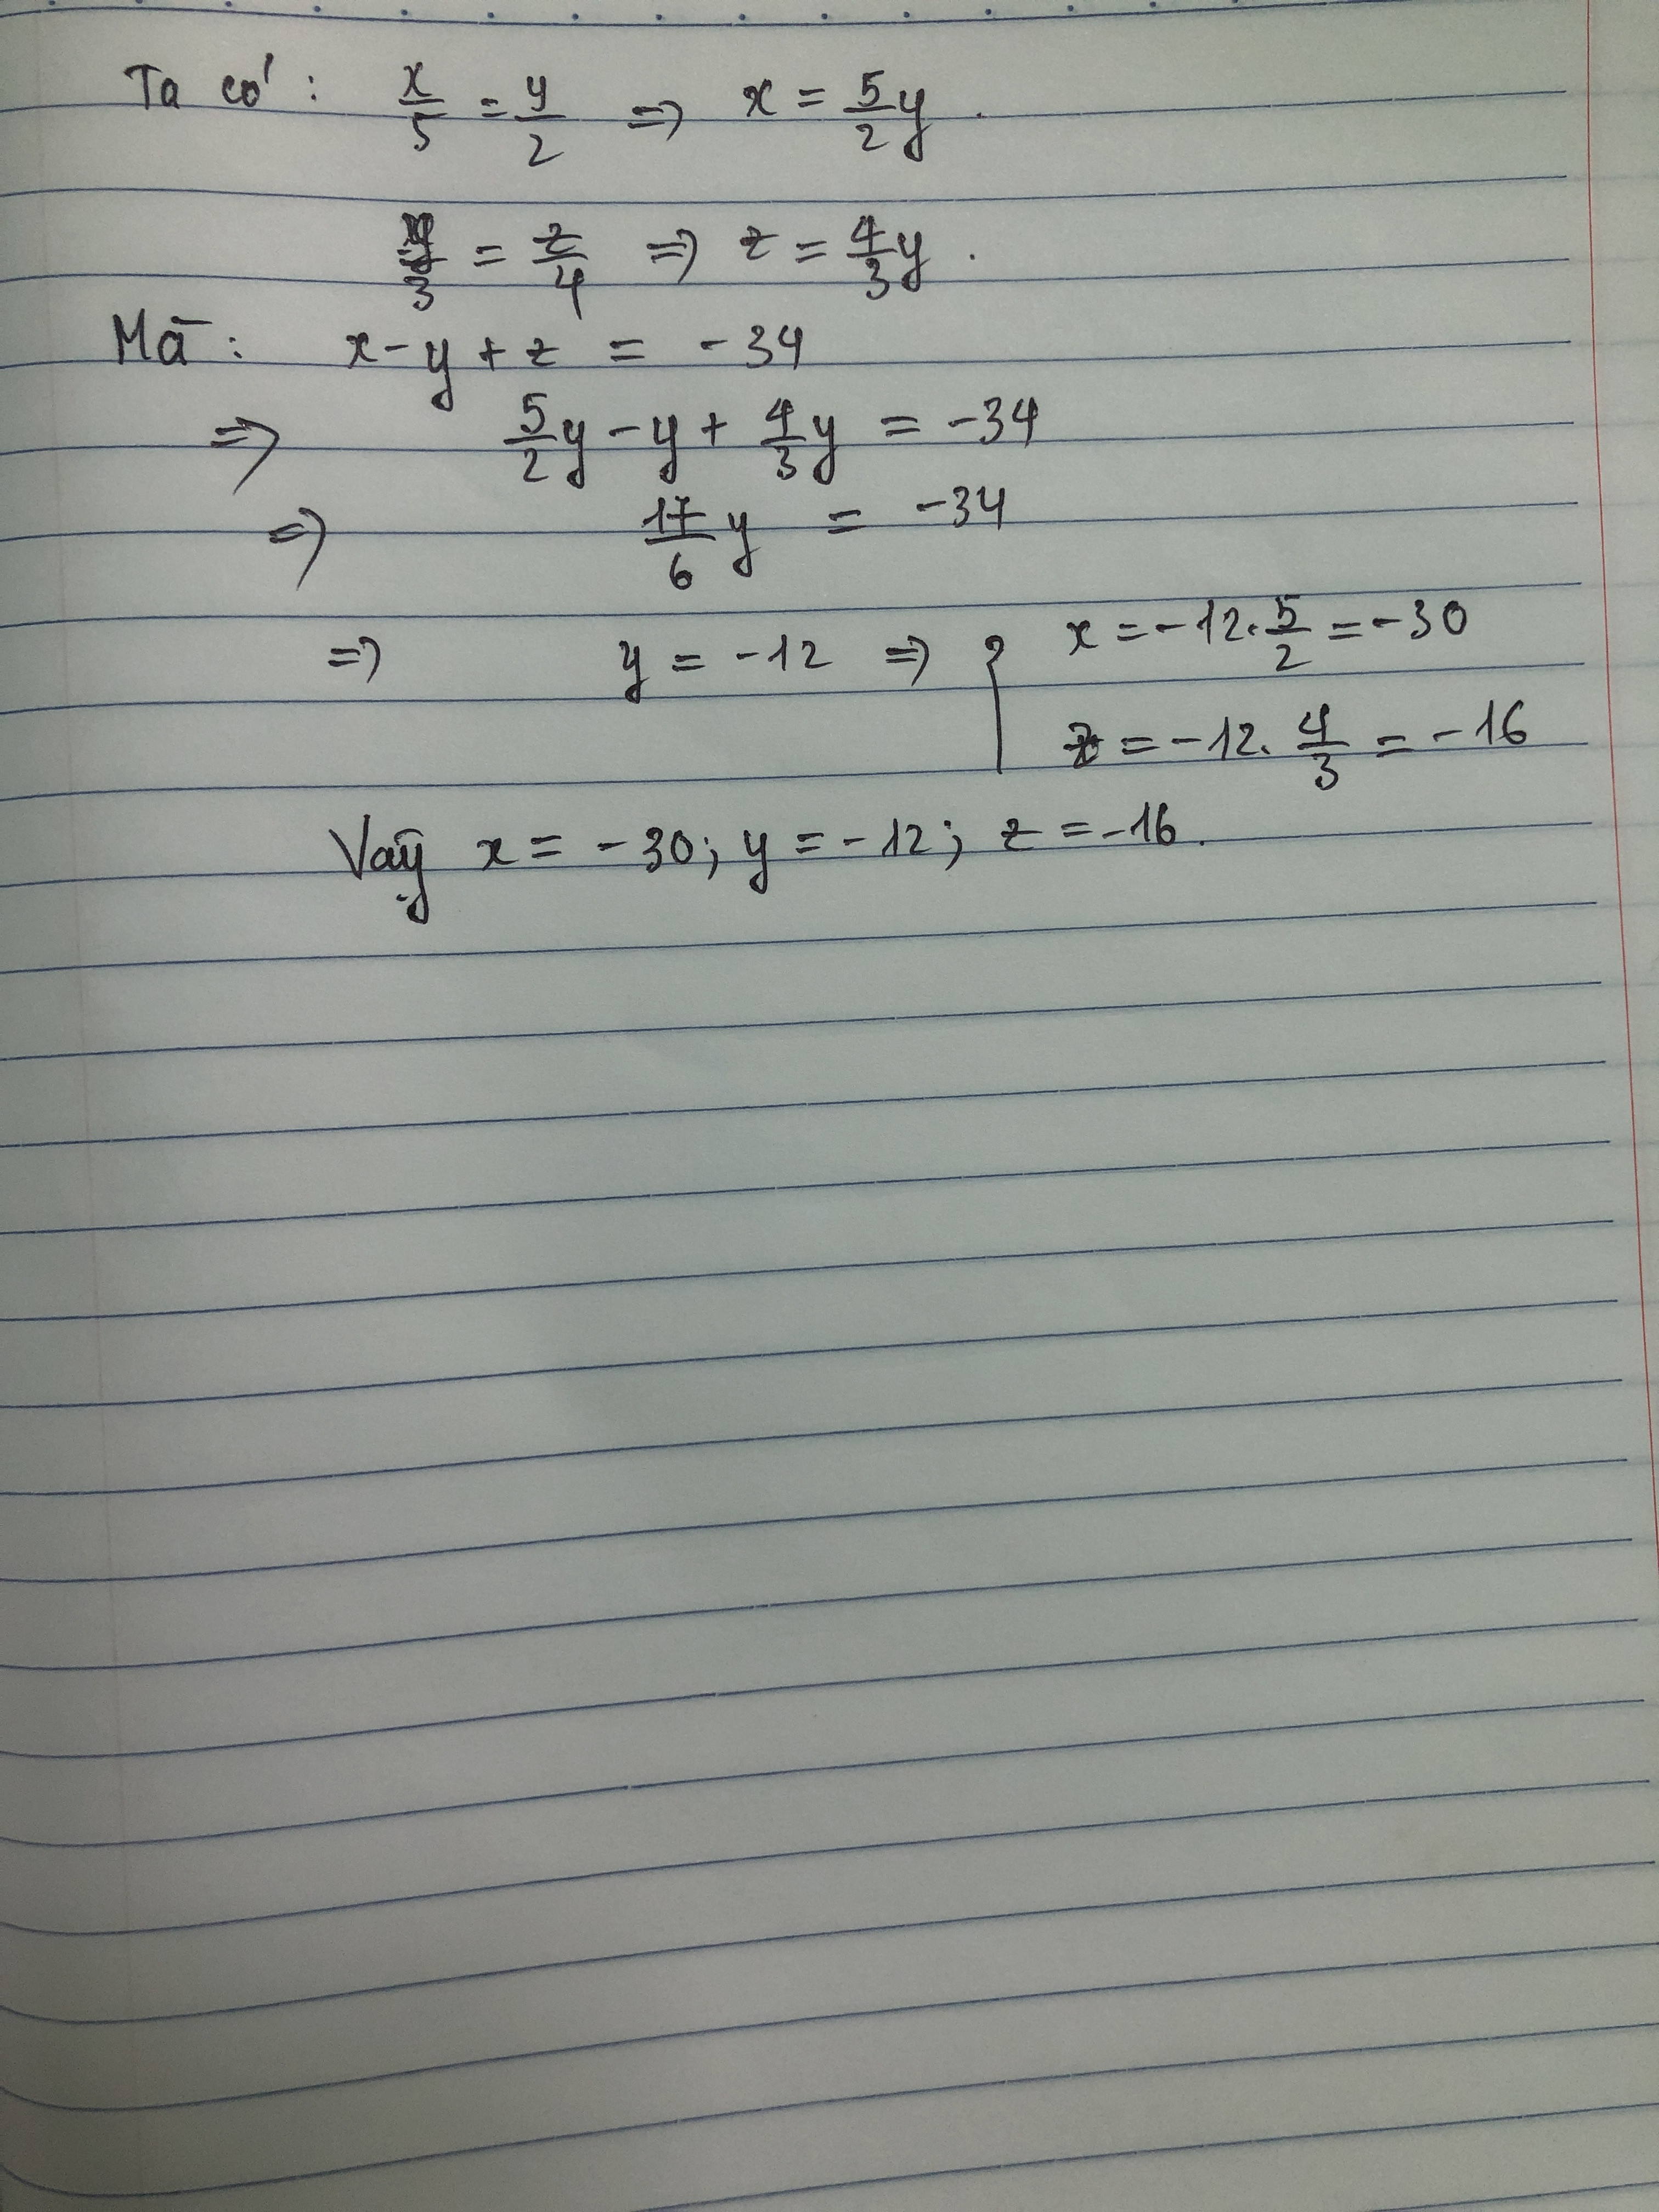 Ta có: x/5 = y/2 => x = 5/2 y.
y/3 = z/4 => z = 4/3 y.
Mà: x - y + z = -34
=> 5/2 y - y + 4/3 y = -34
=> 17/6 y = -34
=> y = -12 => { x = -12 . 5/2 = -30
z = -12 . 4/3 = -16
Vậy x = -30; y = -12; z = -16.